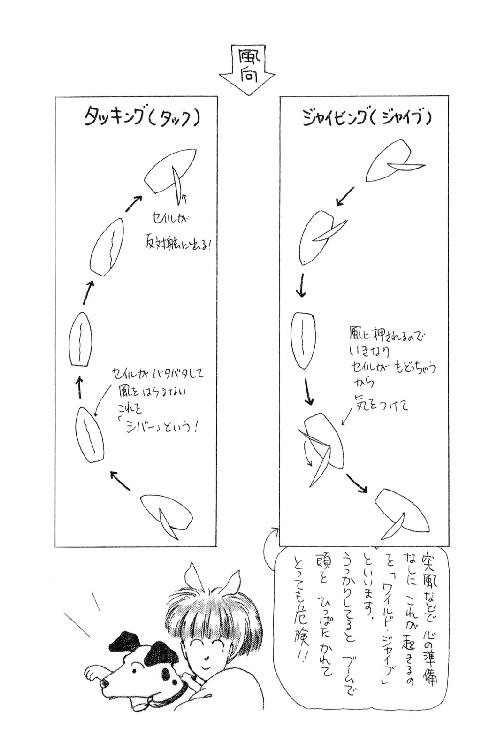 風向
タッキング(タック)
セイルが
反対舷に出る!
セイルがバタバタして
風をはらまない
これを
「シバー」という!
ジャイビング(ジャイブ)
風に押されるので
いきなり
セイルがもどっちゃう
から
気をつけて
突風などで心の準備
なしにこれが起きるの
を「ワイルドジャイブ」
といいます。
うっかりしてるとブームで
頭をひっぱたかれて
とっても危険!!